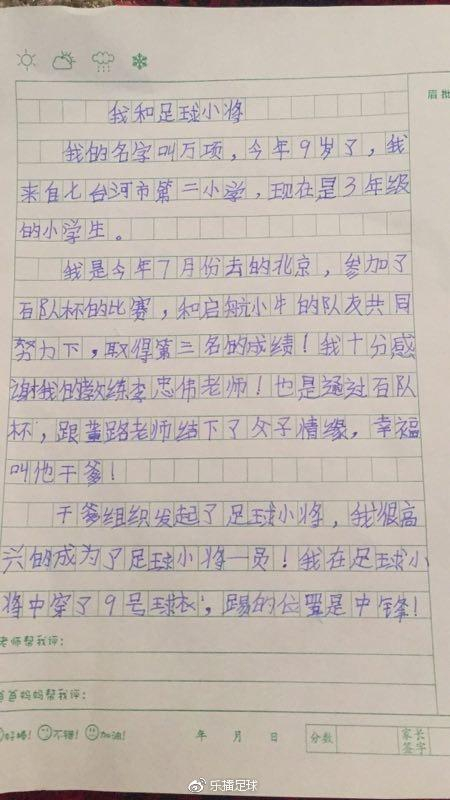 眉批
我和足球小将
我的名字叫万项，今年9岁了，我
来自七台河市第二小学，现在是3年级
的小学生。
我是今年7月份去的北京，参加了
百队杯的比赛，和启航小牛的队友共同
努力下，取得第三名的成绩！我十分感
谢我的教练李忠伟老师！也是通过百队
杯，跟董路老师结下了父子情缘，幸福
叫他干爹！
干爹组织发起了足球小将，我很高
兴的成为了足球小将一员！我在足球小
将中穿了9号球衣，踢的位置是中锋！
老师帮我评：
爸爸妈妈帮我评：
好棒！ 不错！ 加油！ 年 月 日 分数 家长签字
乐播足球